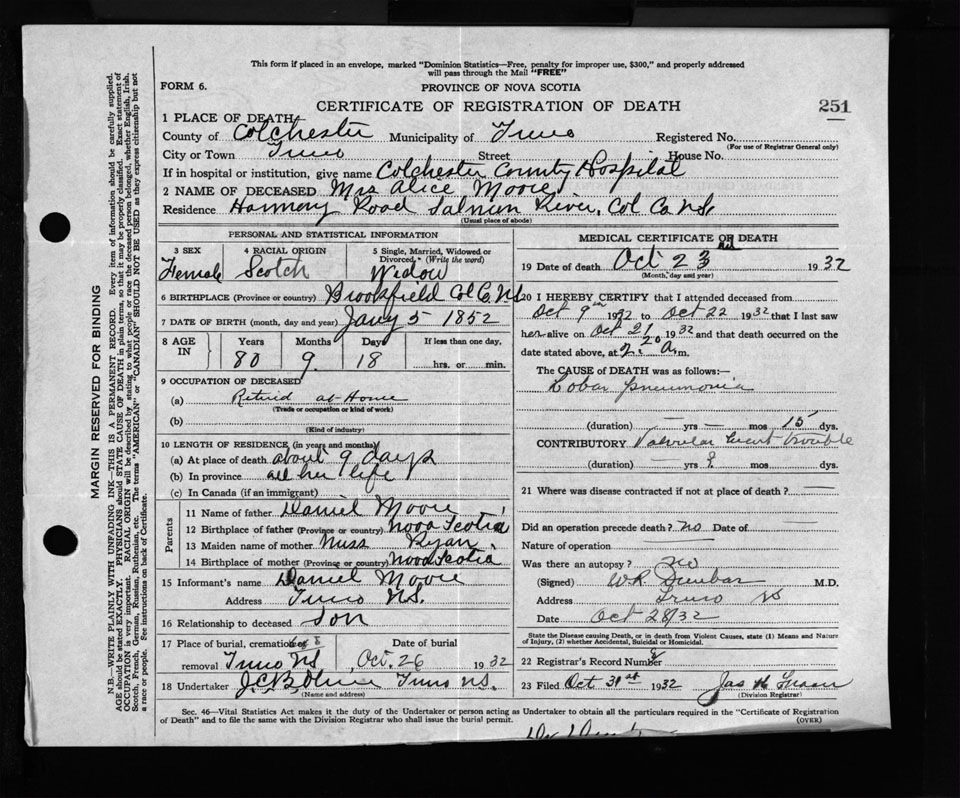 This form if placed in an envelope, marked "Dominion Statistics—Free, penalty for improper use, $300," and properly addressed
will pass through the Mail "FREE"
FORM 6.
PROVINCE OF NOVA SCOTIA
CERTIFICATE OF REGISTRATION OF DEATH
251
1 PLACE OF DEATH
County of Colchester Municipality of Truro Registered No.
(For use of Registrar General only)
City or Town Truro Street House No.
If in hospital or institution, give name Colchester County Hospital
2 NAME OF DECEASED Mrs Alice Moore
Residence Harmony Road Salmon River, Col Co NS.
(Usual place of abode)
PERSONAL AND STATISTICAL INFORMATION
3 SEX 4 RACIAL ORIGIN 5 Single, Married, Widowed or Divorced (Write the word)
Female Scotch Widow
6 BIRTHPLACE (Province or country) Brookfield Col Co, NS
7 DATE OF BIRTH (month, day and year) Jany 5 1852
8 AGE IN Years Months Days If less than one day,
80 9 18 hrs. or min.
9 OCCUPATION OF DECEASED
(a) Retired at Home
(Trade or occupation or kind of work)
(b)
(Kind of industry)
10 LENGTH OF RESIDENCE (in years and months)
(a) At place of death about 9 days
(b) In province all her life
(c) In Canada (if an immigrant)
Parents
11 Name of father Daniel Moore
12 Birthplace of father (Province or country) Nova Scotia
13 Maiden name of mother Miss Ryan
14 Birthplace of mother (Province or country) Nova Scotia
15 Informant's name Daniel Moore
Address Truro NS.
16 Relationship to deceased Son
17 Place of burial, cremation or Date of burial
removal Truro NS Oct. 26 1932
18 Undertaker Truro NS.
(Name and address)
MEDICAL CERTIFICATE OF DEATH
19 Date of death Oct 23 1932
(Month, day and year)
20 I HEREBY CERTIFY that I attended deceased from
Oct 9th 1932 to Oct 22 1932 that I last saw
her alive on Oct 21 1932 and that death occurred on the
date stated above, at 2.20 A.m.
The CAUSE of DEATH was as follows:
Lobar pneumonia
(duration) — yrs — mos 15 dys.
CONTRIBUTORY Valvular heart trouble
(duration) — yrs ? mos dys.
21 Where was disease contracted if not at place of death? —
Did an operation precede death? no Date of —
Nature of operation —
Was there an autopsy? no
(Signed) W.R. Dunbar M.D.
Address Truro NS
Date Oct 28/32
State the Disease causing Death, or in death from Violent Causes, state (1) Means and Nature
of Injury, (2) whether Accidental, Suicidal or Homicidal.
22 Registrar's Record Number
23 Filed Oct 31st 1932 Jas
(Division Registrar)
Sec. 46—Vital Statistics Act makes it the duty of the Undertaker or person acting as Undertaker to obtain all the particulars required in the "Certificate of Registration
of Death" and to file the same with the Division Registrar who shall issue the burial permit.
(OVER)
MARGIN RESERVED FOR BINDING
N.B.—WRITE PLAINLY WITH UNFADING INK—THIS IS A PERMANENT RECORD. Every item of information should be carefully supplied.
AGE should be stated EXACTLY. PHYSICIANS should STATE CAUSE OF DEATH in plain terms, so that it may be properly classified. Exact statement of
OCCUPATION is very important. RACIAL ORIGIN will be described by stating to what people or race the deceased person belonged, whether English, Irish,
Scotch, French, German, Russian, Ruthenian, etc. The terms "AMERICAN" or "CANADIAN" SHOULD NOT BE USED as they express citizenship but not
a race or people. See instructions on back of Certificate.